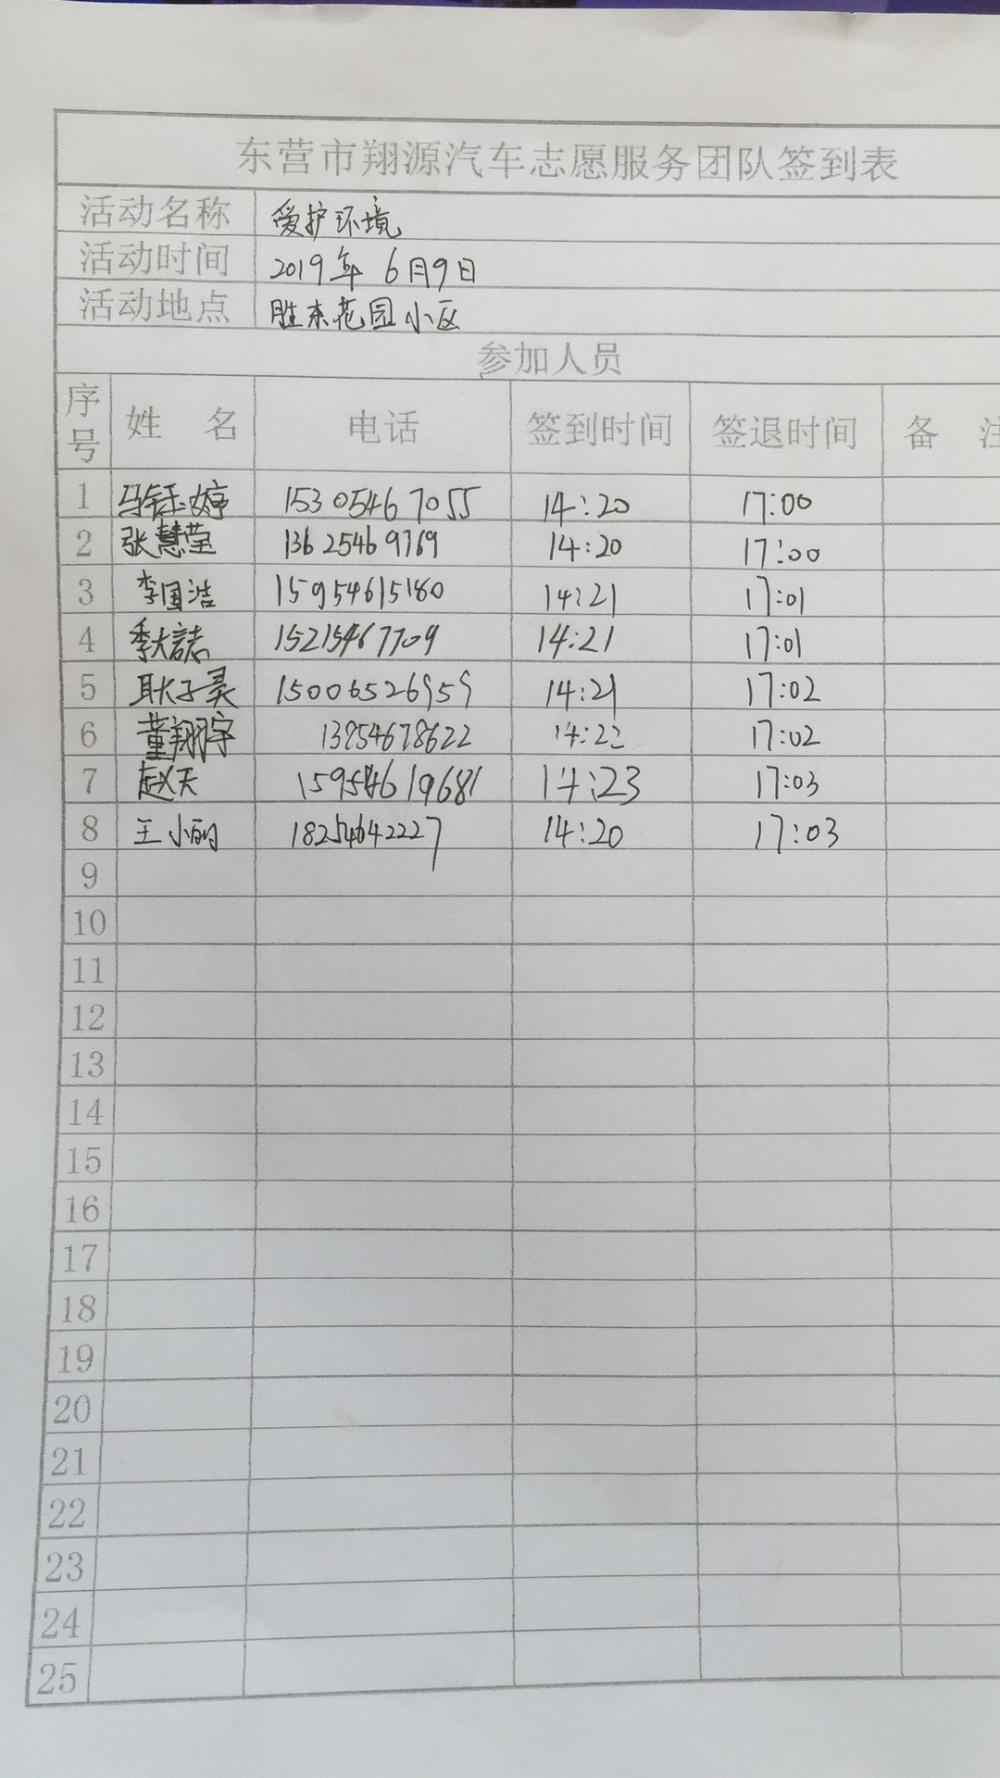 东营市翔源汽车志愿服务团队签到表
活动名称 爱护环境
活动时间 2019年6月9日
活动地点 胜东花园小区
参加人员
序号 姓 名 电话 签到时间 签退时间 备 注
1 马钰婷 15305467055 14:20 17:00
2 张慧莹 13625469769 14:20 17:00
3 李国浩 15954615180 14:21 17:01
4 季大誌 15215467709 14:21 17:01
5 耿子灵 15006526959 14:21 17:02
6 董翔宇 13854678622 14:22 17:02
7 赵天 15954619681 14:23 17:03
8 王小丽 18254642227 14:20 17:03
9
10
11
12
13
14
15
16
17
18
19
20
21
22
23
24
25